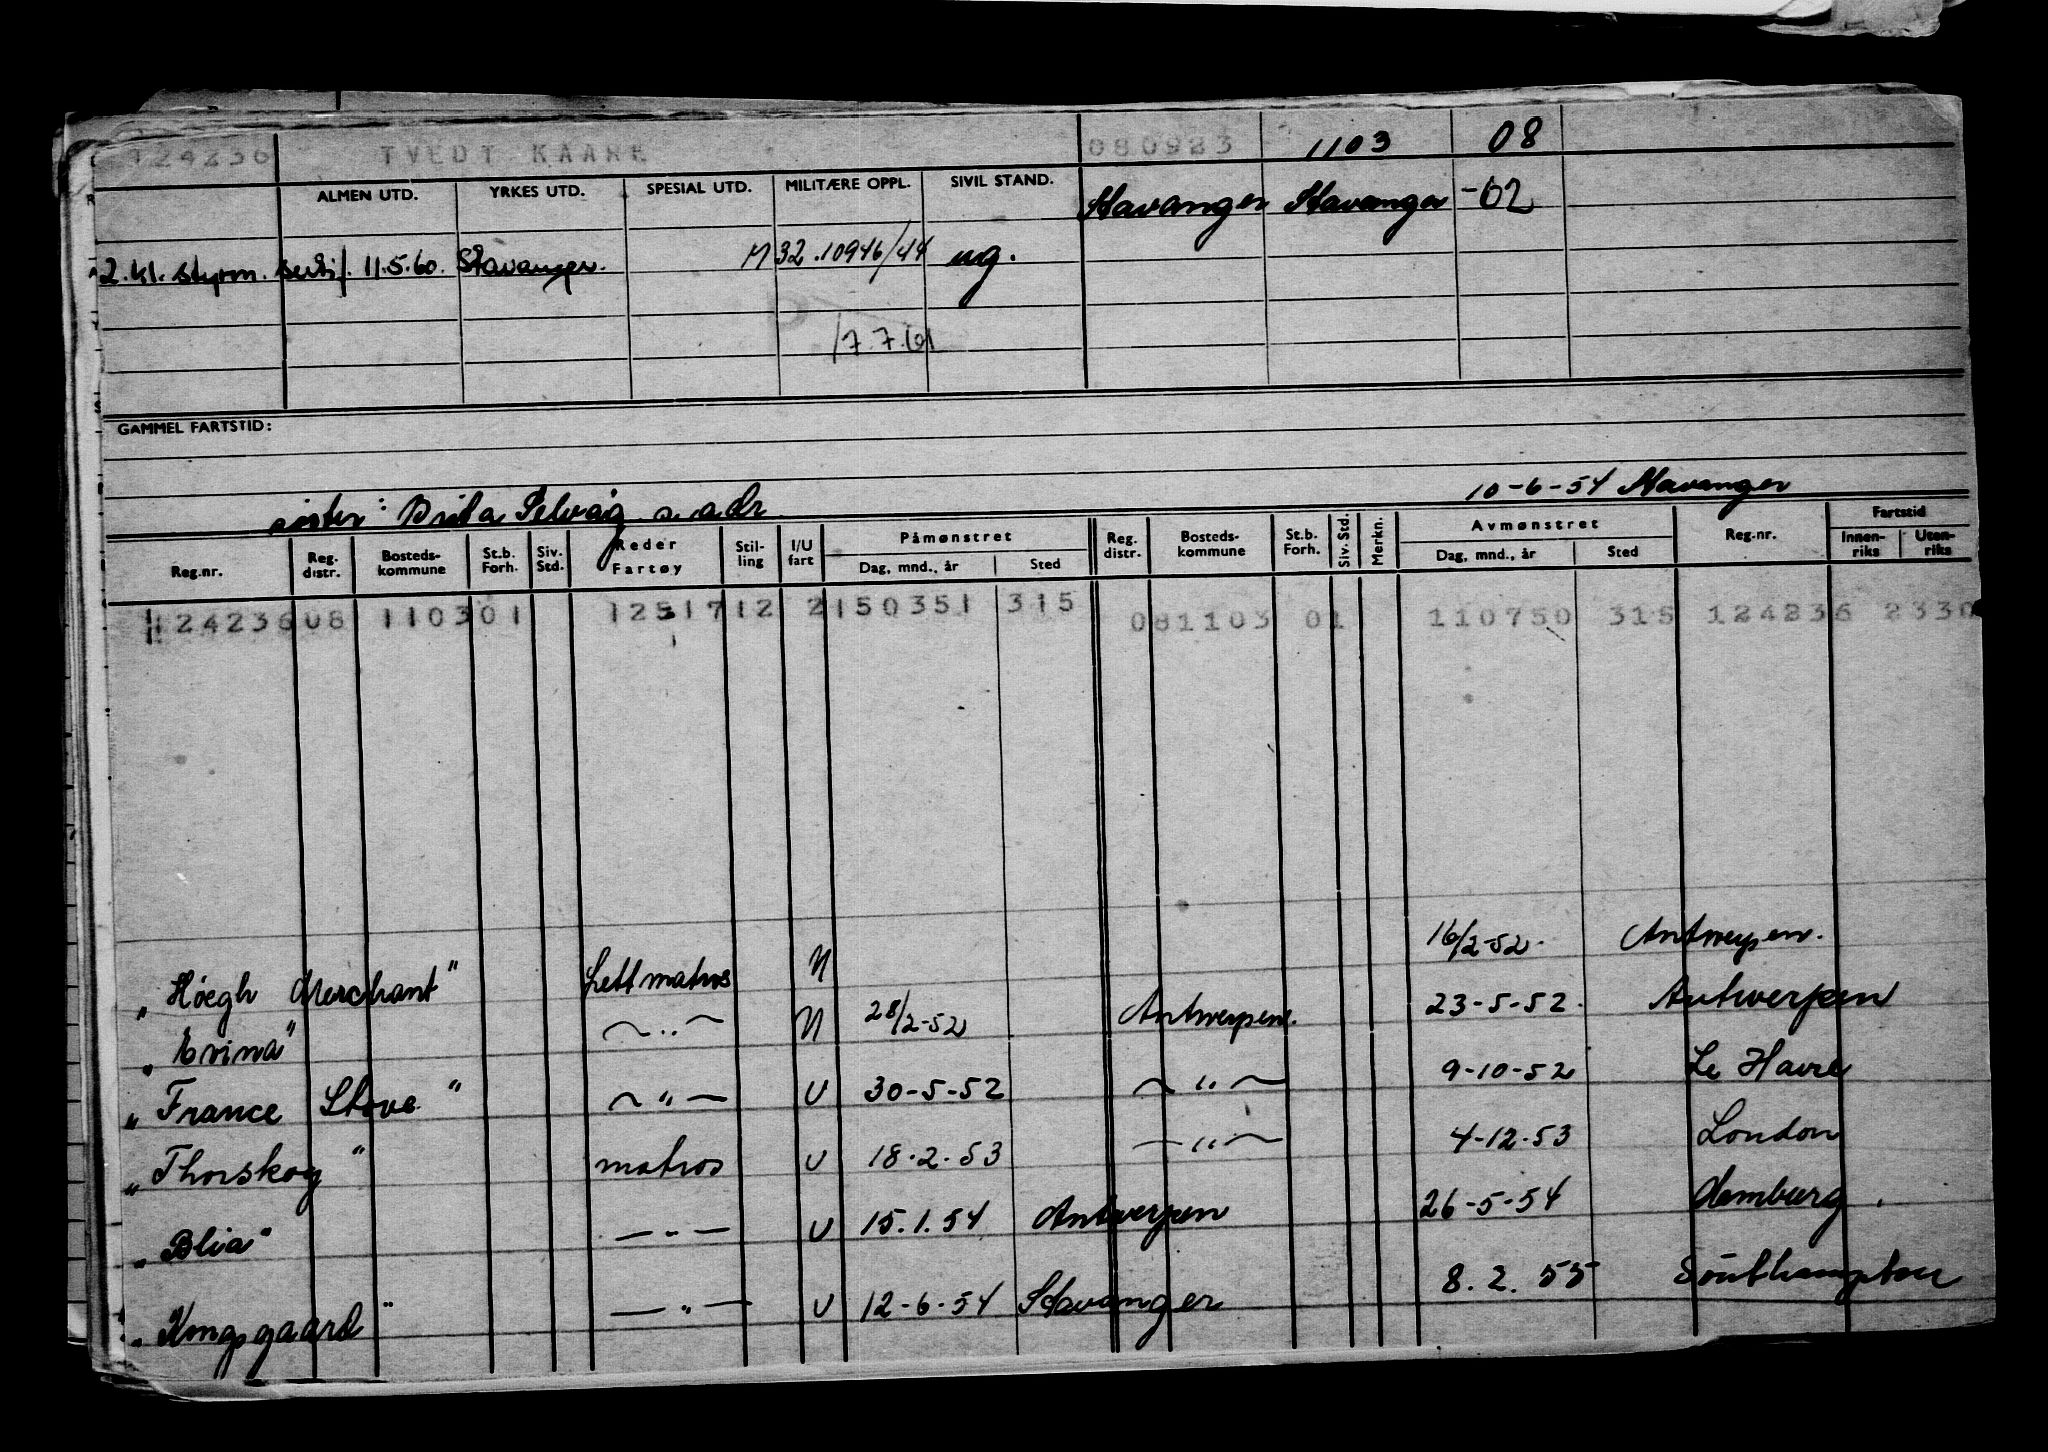 124236 TVEDT KAARE 080923 1103 08
ALMEN UTD. YRKES UTD. SPESIAL UTD. MILITÆRE OPPL. SIVIL STAND. Stavanger Stavanger -02
2.kl. styrm. sertif. 11.5.60. Stavanger. M 32.10946/44 ug.
17.7.61
GAMMEL FARTSTID:
10-6-54 Stavanger
søster: Brita Selvåg s. adr.
Reg.nr. Reg. distr. Bosteds-kommune St.b. Forh. Siv. Std. Reder Fartøy Stil-ling I/U fart Påmønstret Dag, mnd., år Sted Reg. distr. Bosteds-kommune St.b. Forh. Siv. Std. Merkn. Avmønstret Dag, mnd., år Sted Reg.nr. Fartstid Innen-riks Uten-riks
124236 08 1103 01 125171 2 2 150351 315 08 1103 01 110750 315 124236 2330
"Høegh Merchant" Lettmatros U 16/2-52. Antwerpen.
"Evina" — " — U 28/2-52 Antwerpen. 23-5-52. Antwerpen
"France Stove" — " — U 30-5-52 — " — 9-10-52 Le Havre
"Thorskog" matros U 18.2.53 — " — 4-12.53 London
"Blia" — " — U 15.1.54 Antwerpen 26-5-54 Hamburg.
"Kongsgaard" — " — U 12-6-54 Stavanger 8.2.55 Southampton